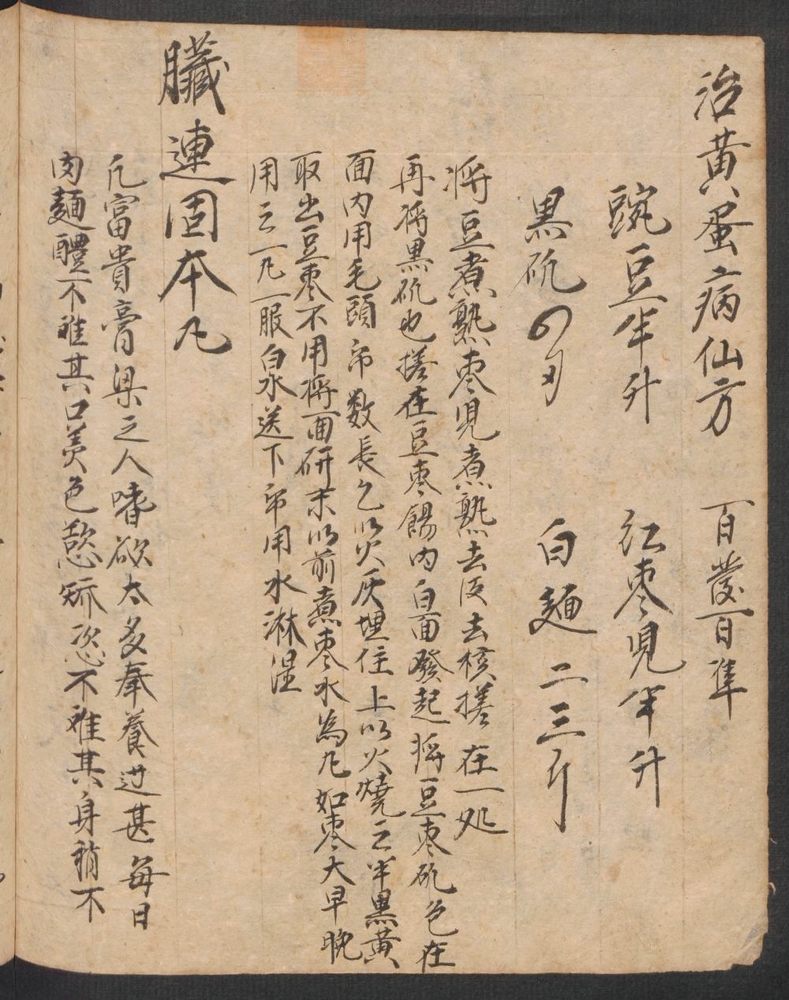 治黄蛋病仙方　百發百準
豌豆半升　紅枣児半升
黒矾四刄　白麺二三斤
將豆煮熟枣児煮熟去皮去核搓在一処
再將黒矾也搓在豆枣餳内白面發起將豆枣矾包在
面内用毛頭帋数長乞以火灰埋住上以火燒之半黒黄
取出豆枣不用將面研末以前煮枣水為凡如枣大早晚
用之一凡一服白水送下帋用水淋湿
臟連固本凡
凡富貴膏梁之人嗜欲太多奉養过甚每日
肉麺醴不雅其口美色慾恣不雅其身稍不